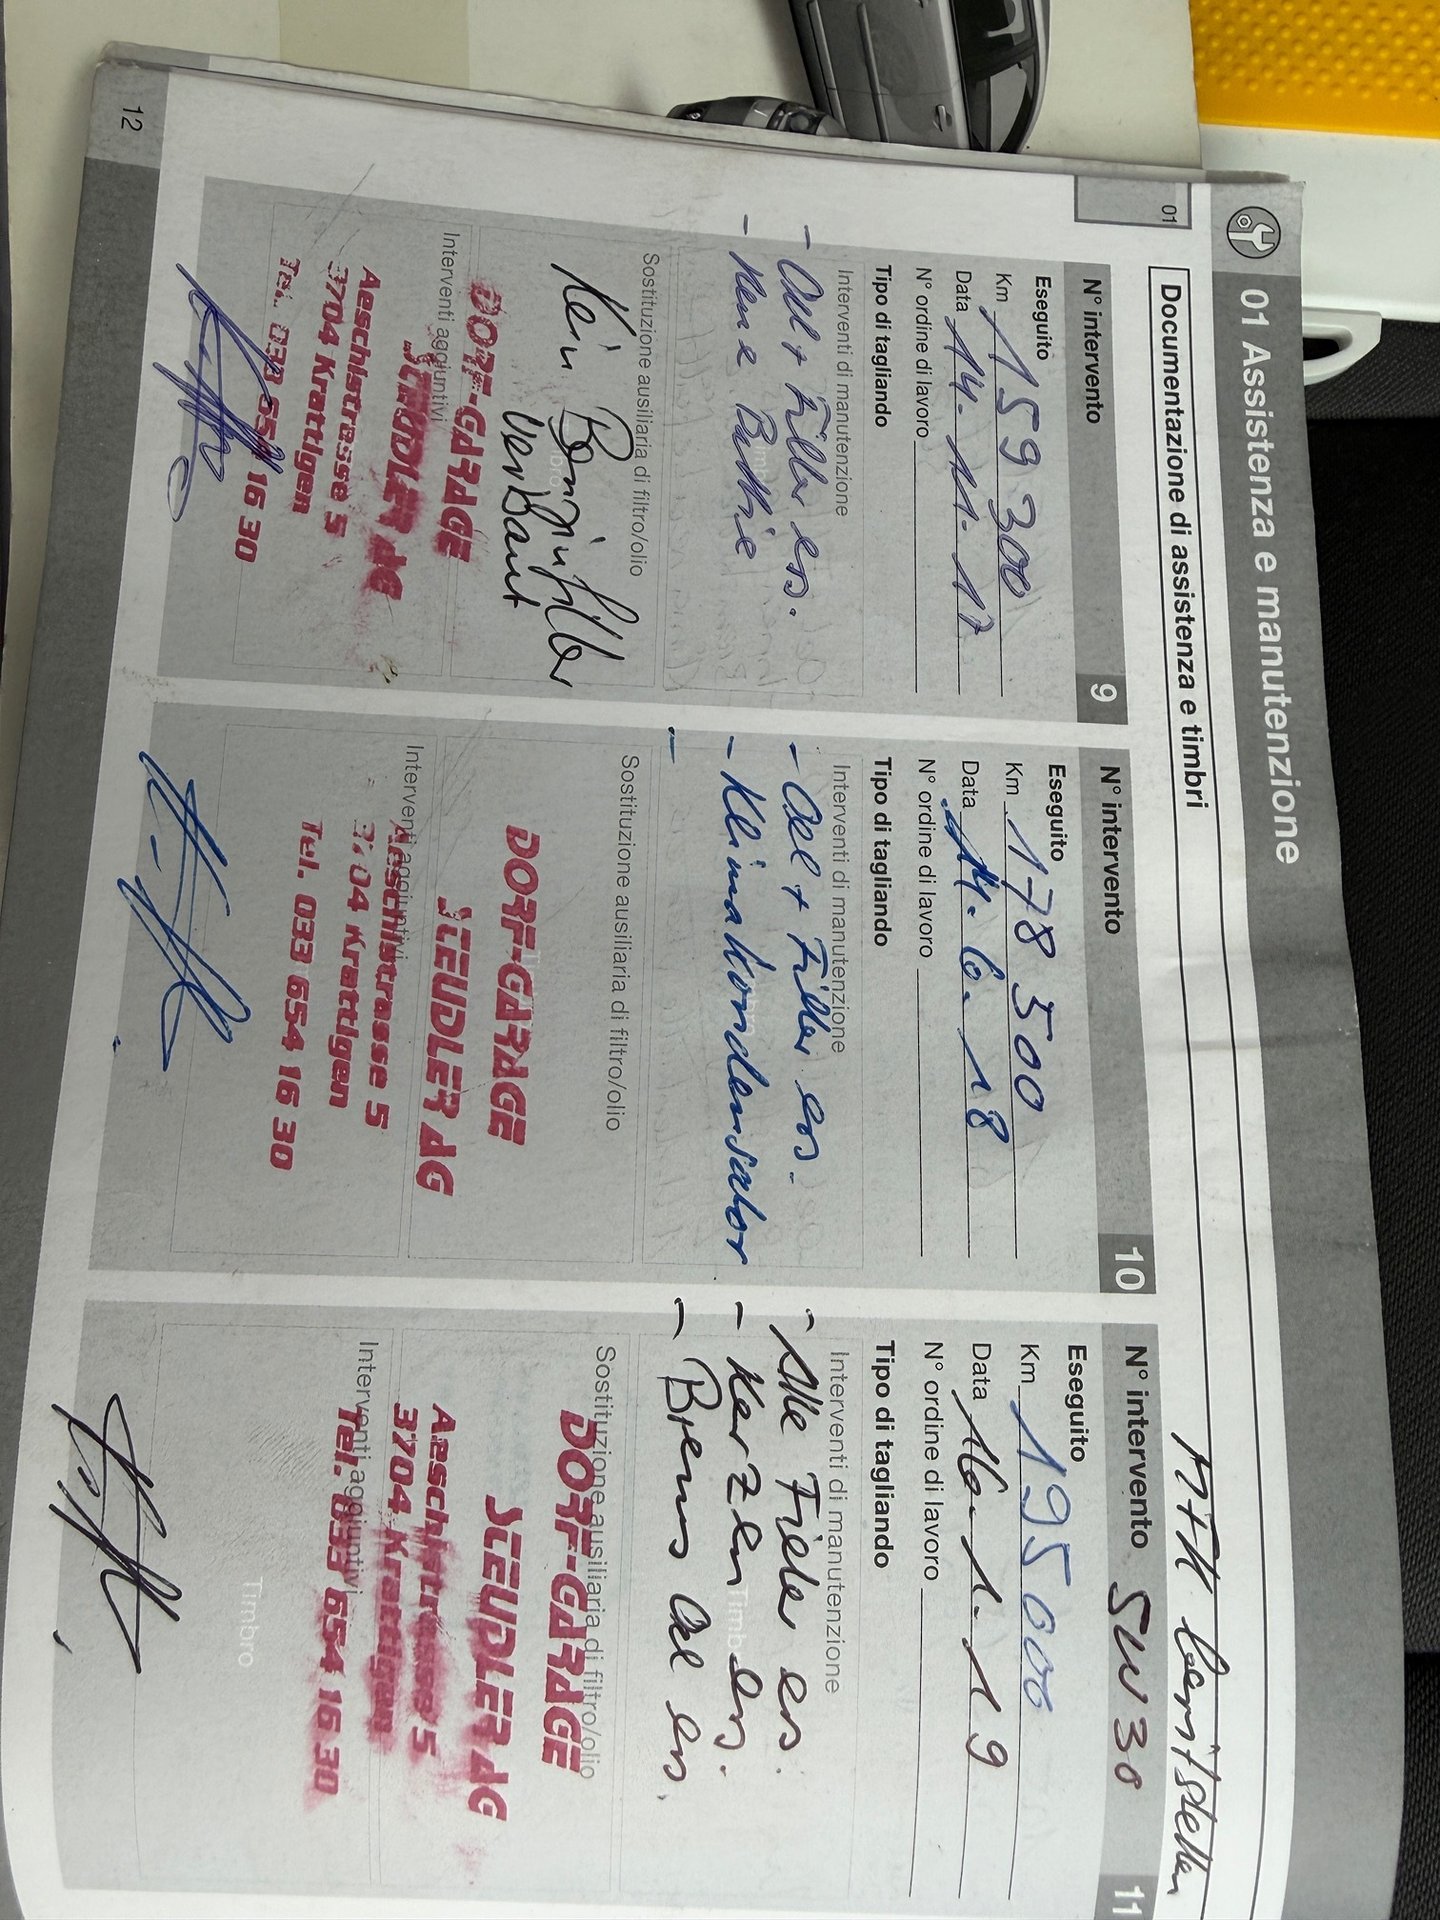 01 Assistenza e manutenzione
01
Documentazione di assistenza e timbri
MFK bereitstellen
N° intervento 9
Eseguito
Km 159 300
Data 14. 11. 17
N° ordine di lavoro
Tipo di tagliando
Interventi di manutenzione
- Oel + Filter ers.
- Neue Batterie
Sostituzione ausiliaria di filtro/olio
Kein Benzinfilter
verbaut
DORF-GARAGE
STEUDLER AG
Interventi aggiuntivi
Aeschistrasse 5
3704 Krattigen
Tel. 033 654 16 30
N° intervento 10
Eseguito
Km 178 500
Data 14. 6. 18
N° ordine di lavoro
Tipo di tagliando
Interventi di manutenzione
- Oel + Filter ers.
- Klimakondensator
-
Sostituzione ausiliaria di filtro/olio
DORF-GARAGE
STEUDLER AG
Interventi aggiuntivi
Aeschistrasse 5
3704 Krattigen
Tel. 033 654 16 30
N° intervento 5W30 11
Eseguito
Km 195 000
Data 16. 1. 19
N° ordine di lavoro
Tipo di tagliando
Interventi di manutenzione
- Alle Filter ers.
- Kerzen ers.
- Brems Oel ers.
Sostituzione ausiliaria di filtro/olio
DORF-GARAGE
STEUDLER AG
Aeschistrasse 5
3704 Krattigen
Interventi aggiuntivi
Tel. 033 654 16 30
Timbro
12